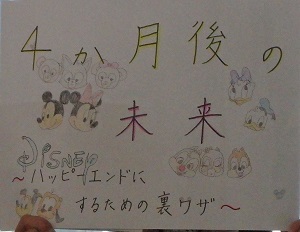 4か月後の
未来
Disney
～ハッピーエンドに
するための裏ワザ～